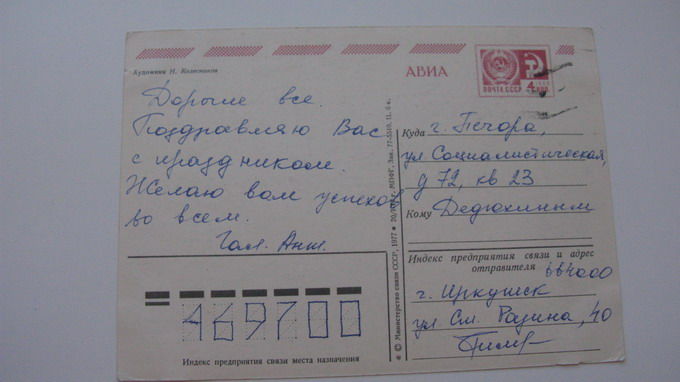 Художник Н. Колесников
АВИА
ПОЧТА СССР
4 КОП
Дорогие все.
Поздравляю Вас
с праздником.
Желаю вам успехов
во всем.
Гал.
Куда г. Печора,
ул Социалистическая,
д 72, кв 23
Кому Дедюхиным
Индекс предприятия связи и адрес
отправителя 664000
г. Иркутск
ул. Ст. Разина, 40
469700
Индекс предприятия связи места назначения
© Министерство связи СССР, 1977